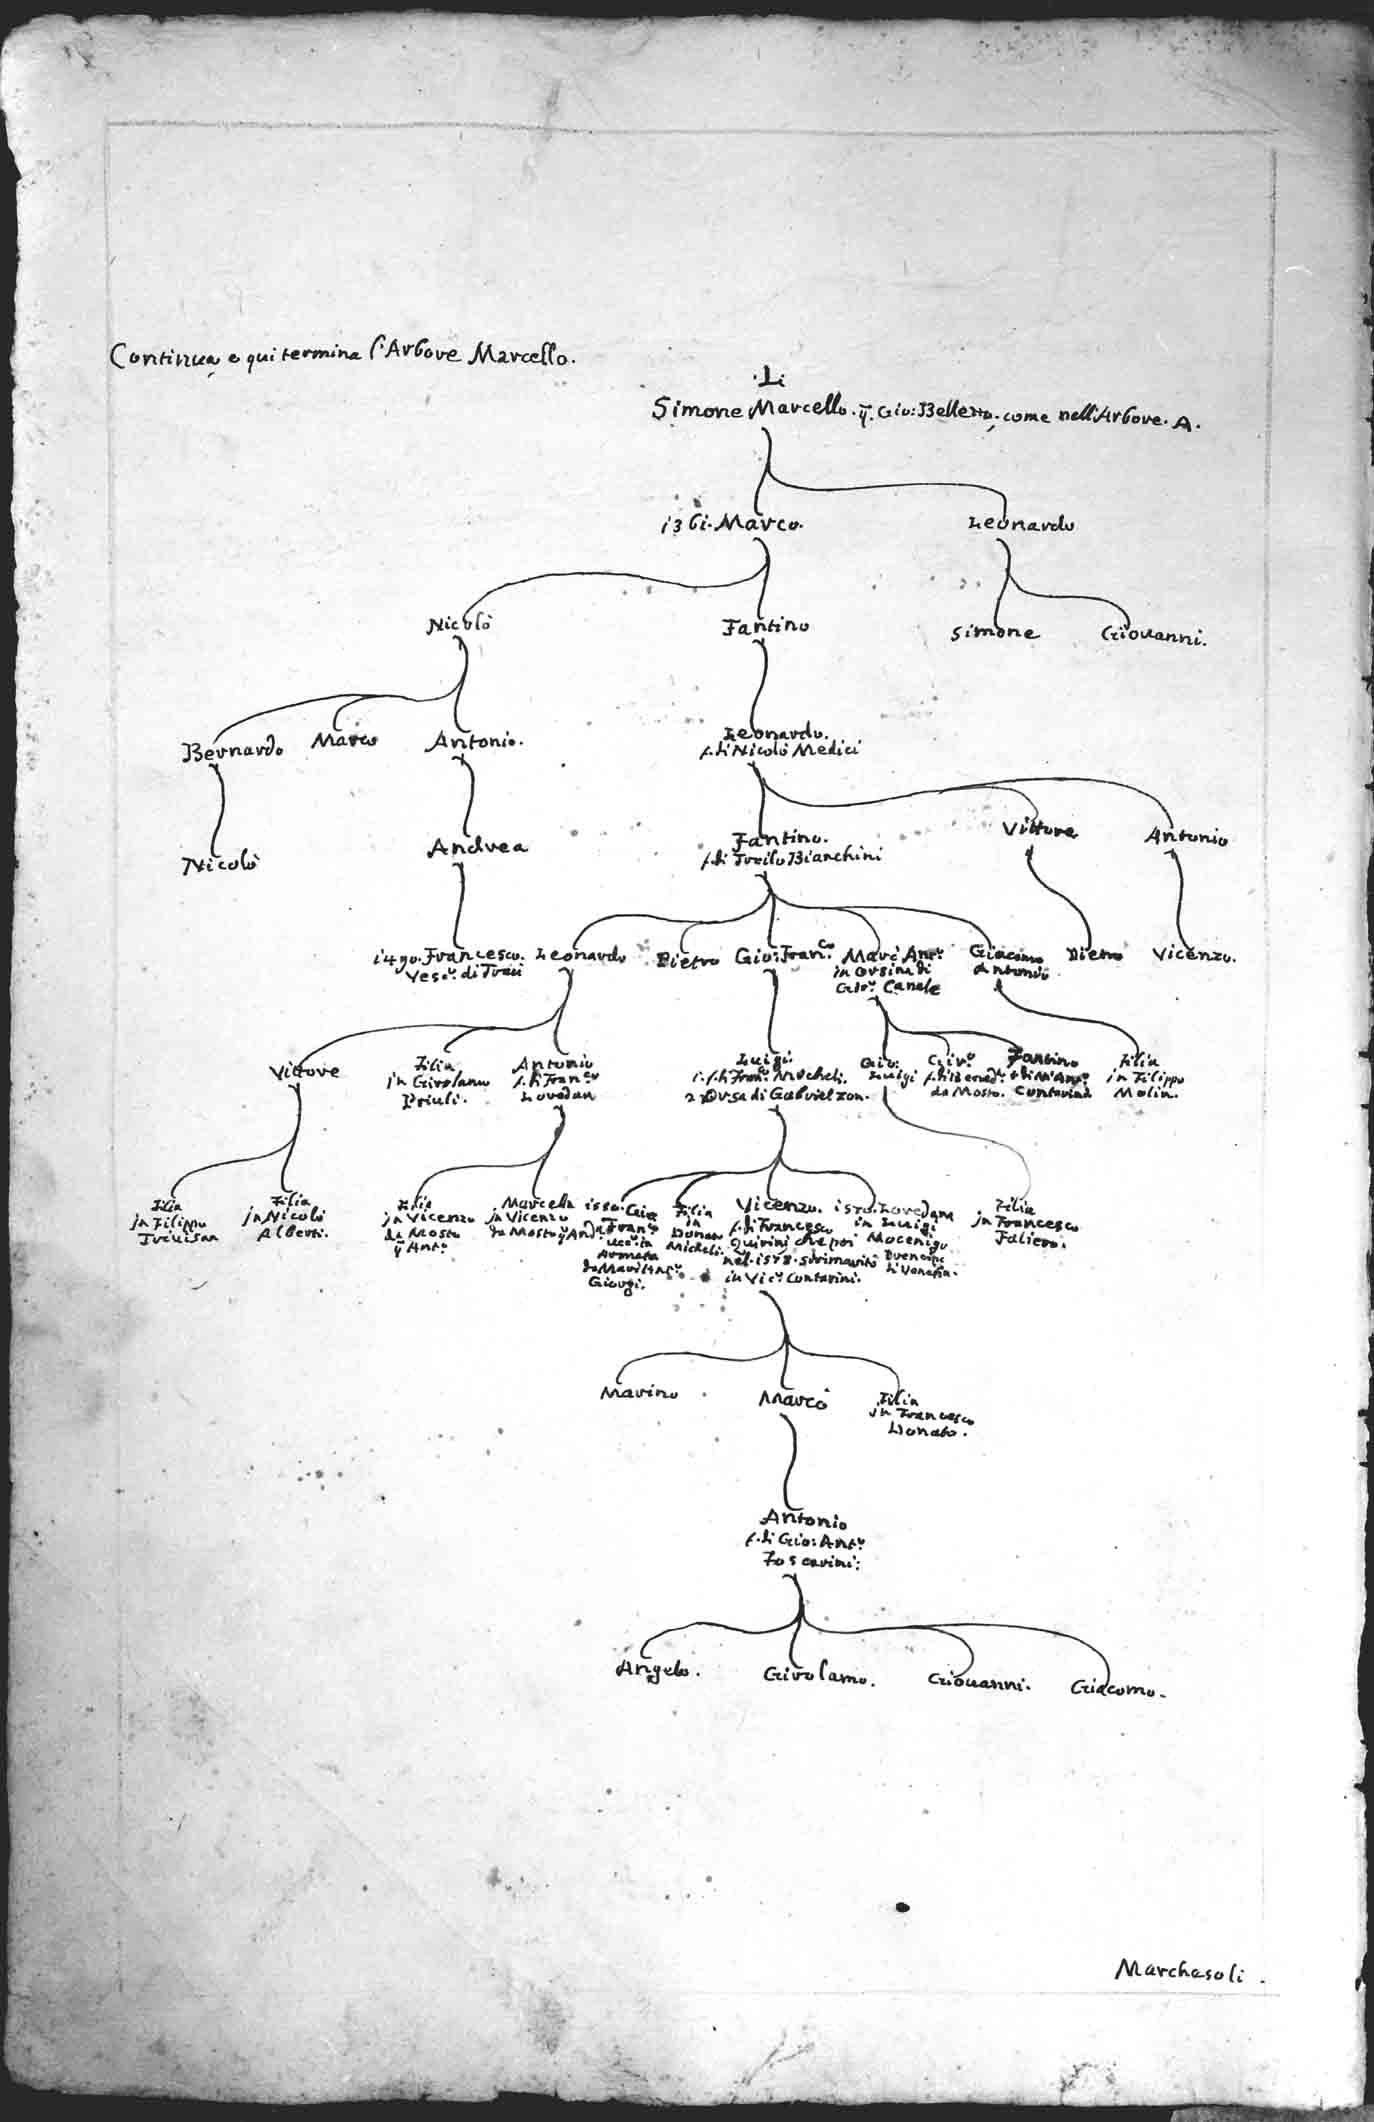 Continua, e qui termina l'Arbore Marcello.
Li
Simone Marcello. q. Gio: Belletto, come nell'Arbore. A.
1361. Marco. Leonardo
Nicolò Fantino Simone Giovanni.
Bernardo Marco Antonio. Leonardo.
f. di Nicolò Medici
Nicolò Andrea Fantino. Vittore Antonio
f. di Troilo Bianchini
1490. Francesco. Leonardo Pietro Gio: Franc.º Marc'Ant.º Giacomo Pietro Vicenzo.
Vesc.º di Traù in Orsina di Antonio
Gir.º Canale
Vittore Filia Antonio Luigi. Gio: Gir.º Fantino Filia
in Girolamo f. di Franc.º 1. f. di Franc.º Micheli. Luigi f. di Bernad.º f. di M. Ant.º in Filippo
Priuli. Loredan 2 Orsa di Gabriel zon. da Mosto. Contarina Molin.
Filia Filia Filia Marcella Gio: Filia Vicenzo. 1570. Loredana Filia
in Filippo in Nicolò in Vicenzo in Vicenzo Franc.º in f. di Francesco in Luigi in Francesco
Trivisan Alberti. da Mosto da Mosto q. And.º ucc.º in Donato Quirini che poi Mocenigo Faliero.
q. Ant.º Armata Micheli. nel 1578. si rimaritò Prencipe
Giorgi. in Vic.º Contarini. di Venetia.
Marino Marco Filia
in Francesco
Donato.
Antonio
f. di Gio: Ant.º
Foscarini:
Angelo. Girolamo. Giovanni. Giacomo.
Marchesoli.